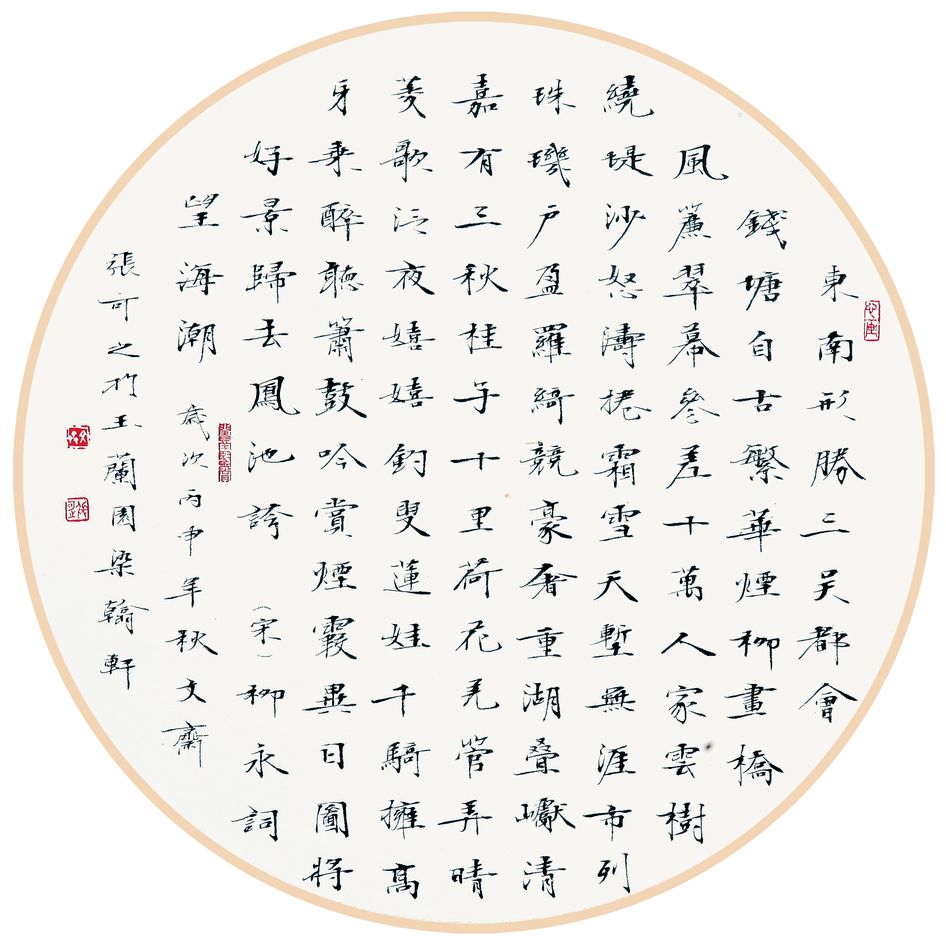 東南形勝三吳都會
錢塘自古繁華煙柳畫橋
風簾翠幕參差十萬人家雲樹
繞堤沙怒濤捲霜雪天塹無涯市列
珠璣戶盈羅綺競豪奢重湖疊巘清
嘉有三秋桂子十里荷花羌管弄晴
菱歌泛夜嬉嬉釣叟蓮娃千騎擁高
牙乘醉聽簫鼓吟賞煙霞異日圖將
好景歸去鳳池誇（宋）柳永詞
望海潮 歲次丙申年秋文齋
張可之於玉蘭園染翰軒